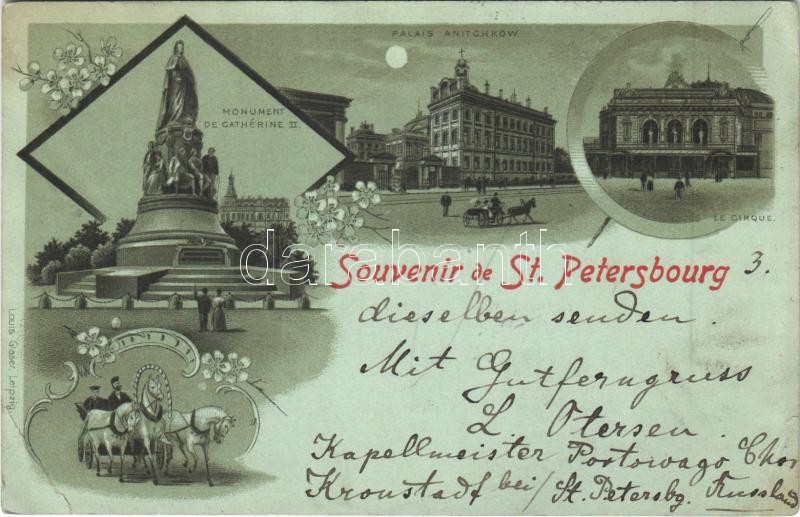 PALAIS ANITCHKOW
MONUMENT
DE CATHÉRINE II.
LE CIRQUE.
darabanth
Souvenir de St. Petersbourg 3.
dieselben senden.
Mit Gutferngruss
L. Otersen.
Kapellmeister Portowago Chor
Kronstadt bei/St. Petersbg. Russland
Louis Glaser, Leipzig